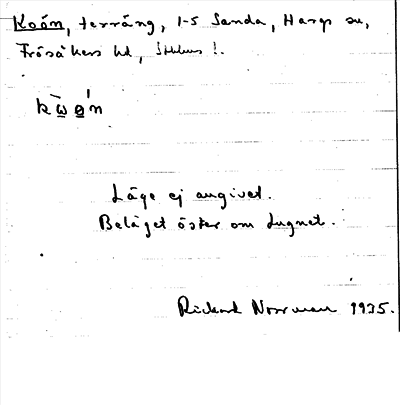 Koön, terräng, 1-5 Sanda, Hargs sn,
Frösåkers hd, Sthlms l.
kẁo̱n
Läge ej angivet.
Beläget öster om Lugnet.
Rickard Norrman 1935.